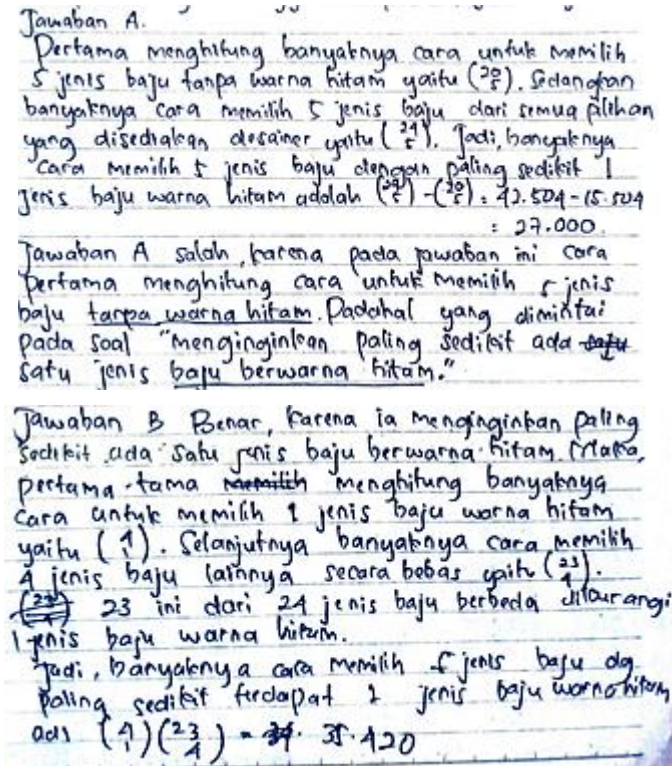 Jawaban A.
Pertama menghitung banyaknya cara untuk memilih
5 jenis baju tanpa warna hitam yaitu (20 5). Sedangkan
banyaknya cara memilih 5 jenis baju dari semua pilihan
yang disediakan desainer yaitu (24 5). Jadi, banyaknya
cara memilih 5 jenis baju dengan paling sedikit 1
jenis baju warna hitam adalah (24 5) - (20 5) = 42.504 - 15.504
= 27.000.
Jawaban A salah, karena pada jawaban ini cara
pertama menghitung cara untuk memilih 5 jenis
baju tanpa warna hitam. Padahal yang dimintai
pada soal "menginginkan paling sedikit ada satu
satu jenis baju berwarna hitam."
Jawaban B Benar, karena ia menginginkan paling
sedikit ada satu jenis baju berwarna hitam. Maka,
pertama-tama memilih menghitung banyaknya
cara untuk memilih 1 jenis baju warna hitam
yaitu (4 1). Selanjutnya banyaknya cara memilih
4 jenis baju lainnya secara bebas yaitu (23 4).
(23 4) 23 ini dari 24 jenis baju berbeda dikurangi
1 jenis baju warna hitam.
Jadi, banyaknya cara memilih 5 jenis baju dg
paling sedikit terdapat 1 jenis baju warna hitam
adl (4 1)(23 4) = 35.420